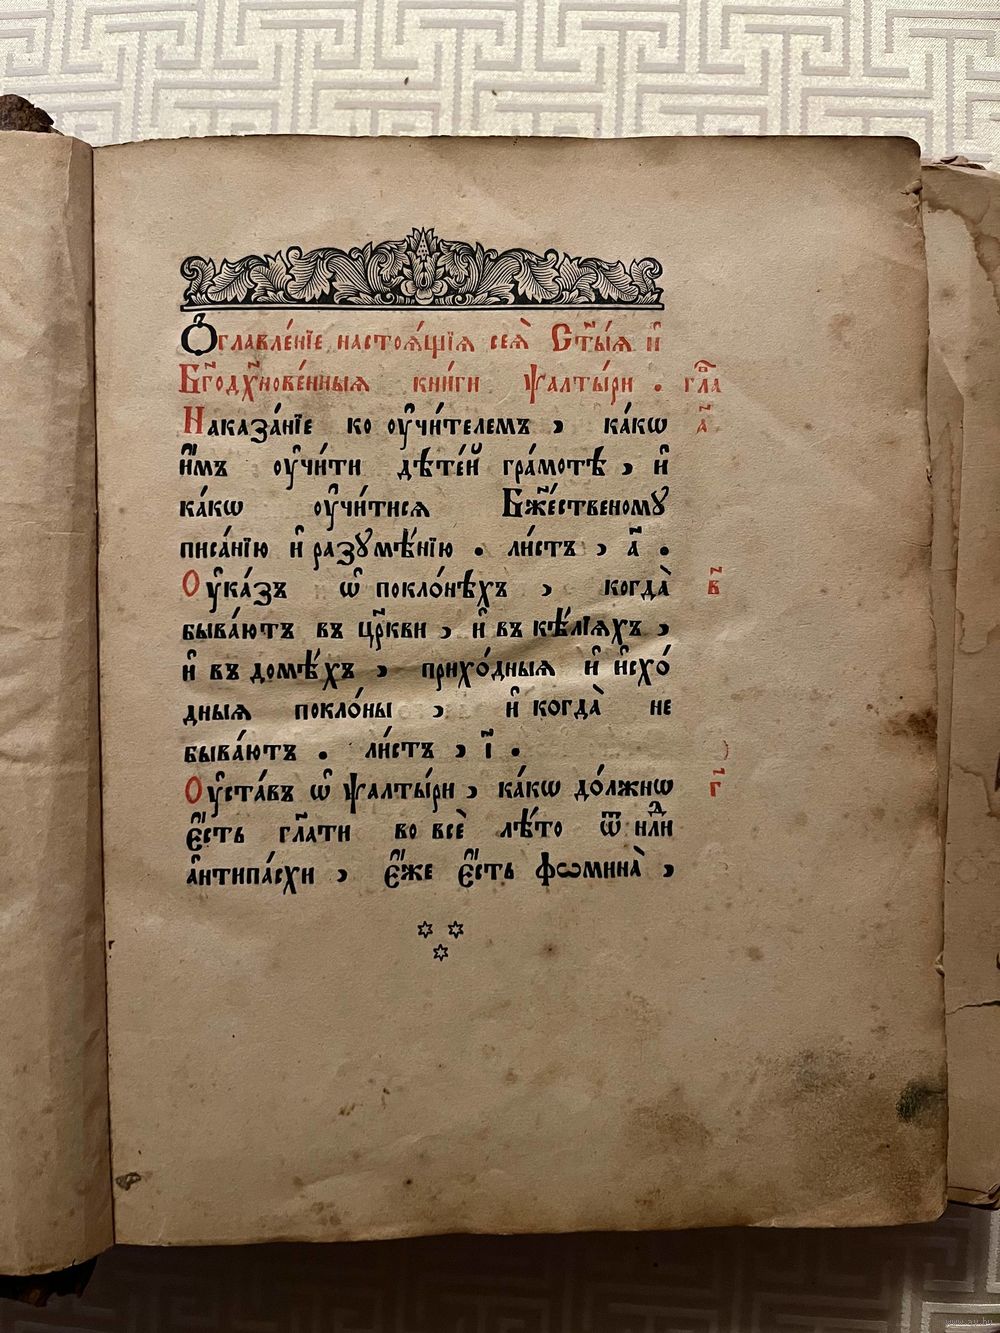 Ѻ҆главле́нїе настоѧ́щїѧ сеѧ̀ Ст҃ы́ѧ и҆
Бг҃одх҃нове́нныѧ кни́ги ѱалты́ри . гла̑
Наказа́нїе ко ᲂу҆чи́телемъ , ка́кѡ а҃
и҆̀мъ ᲂу҆чи́ти дѣте́й гра́мотѣ , и҆
ка́кѡ ᲂу҆чи́тисѧ Бж҃е́ственомꙋ
писа́нїю и҆ разꙋмѣ́нїю . ли́стъ , а҃ .
Оу҆ка́зъ ѡ҆ покло́нѣхъ , когда̀ в҃
быва́ютъ въ цр҃кви , и҆ въ кѣ́лїѧхъ ,
и҆ въ домѣ́хъ , прихо́дныѧ и҆ и҆схо́
дныѧ покло́ны , и҆ когда̀ не
быва́ютъ . ли́стъ , і҃ .
Оу҆ста́въ ѡ҆ ѱалты́ри , ка́кѡ до́лжнѡ г҃
є҆́сть гл҃ати во всѐ лѣ́то ѿ нлⷣи
а҆нтипа́схи , є҆́же є҆́сть фѡмина̀ ,